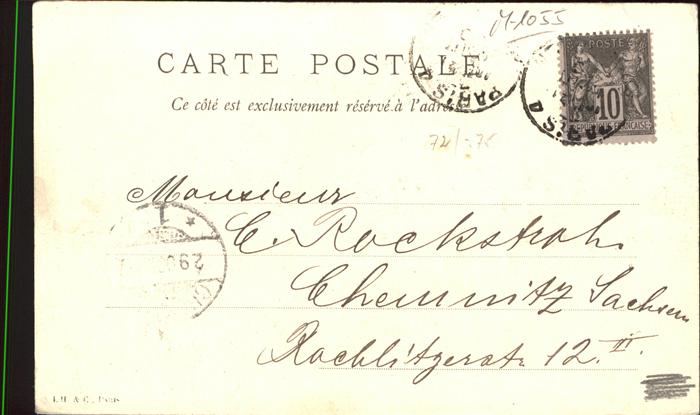 M-1055
CARTE POSTALE
Ce côté est exclusivement réservé à l'adresse
POSTE
10
REPUBLIQUE FRANÇAISE
PARIS
PARIS D
72/-75
Monsieur
C. Rockstroh
Chemnitz Sachsen
Rochlitzerstr. 12. II.
29
Paris